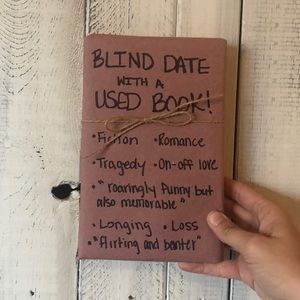 BLIND DATE
WITH A
USED BOOK!
• Fiction • Romance
• Tragedy • On-off love
• "roaringly funny but
also memorable"
• Longing • Loss
• "Flirting and banter"